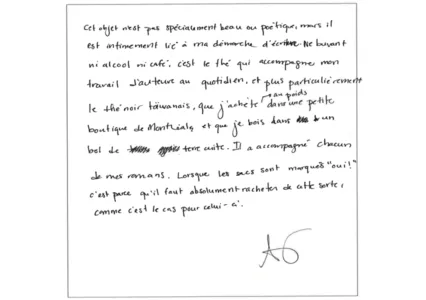 Cet objet n'est pas spécialement beau ou poétique, mais il
est intimement lié à ma démarche d'écriture. Ne buvant
ni alcool ni café, c'est le thé qui accompagne mon
travail d'auteure au quotidien, et plus particulièrement
le thé noir taïwanais, que j'achète au poids dans une petite
boutique de Montréal, et que je bois dans un
bol de terre cuite. Il a accompagné chacun
de mes romans. Lorsque les sacs sont marqués "oui!"
c'est parce qu'il faut absolument racheter de cette sorte,
comme c'est le cas pour celui-ci.